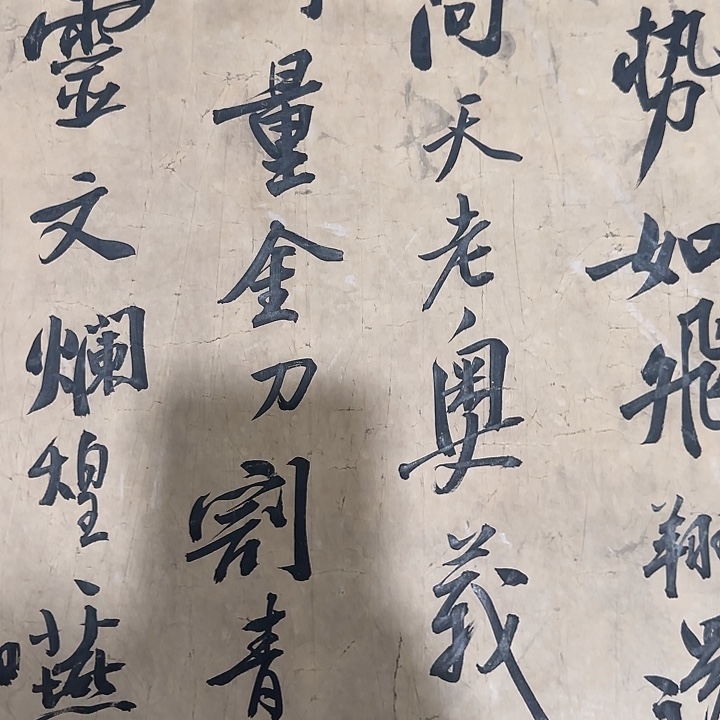 势如飛翔
問天老奧義
量金刀割青
靈文爛煌